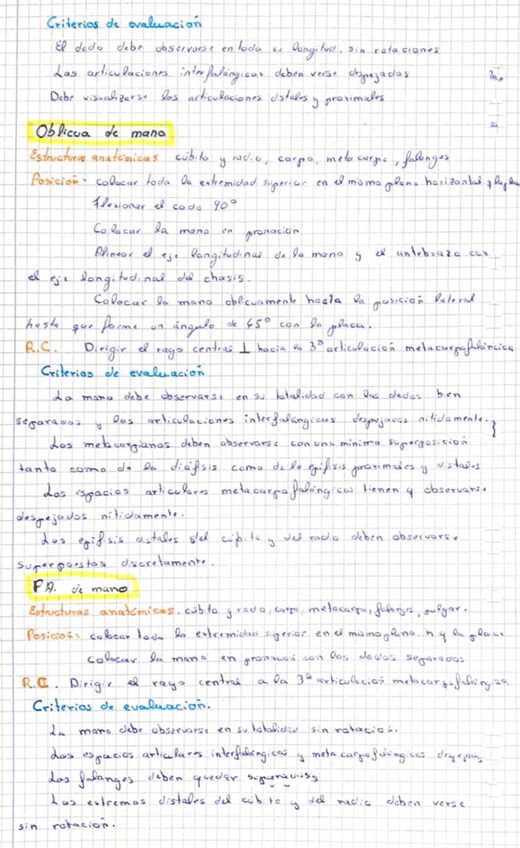 Criterios de evaluación
El dedo debe observarse en toda su longitud, sin rotaciones
Las articulaciones interfalángicas deben verse despejadas
Debe visualizarse las articulaciones distales y proximales
Oblicua de mano
Estructuras anatómicas cúbito y radio, carpo, metacarpo, falanges
Posición: colocar toda la extremidad superior en el mismo plano horizontal y
Flexionar el codo 90°
Colocar la mano en pronación
Alinear el eje longitudinal de la mano y el antebrazo con
el eje longitudinal del chasis.
Colocar la mano oblicuamente hasta la posición lateral
hasta que forme un ángulo de 45° con la placa.
R.C. Dirigir el rayo central ⊥ hacia la 3ª articulación metacarpofalángica
Criterios de evaluación
La mano debe observarse en su totalidad con los dedos bien
separados y las articulaciones interfalángicas despejadas nítidamente.
Los metacarpianos deben observarse con una mínima superposición
tanto como de la diáfisis como de la epífisis proximales y distales
Los espacios articulares metacarpofalángicos tienen q observarse
despejados nítidamente.
Las epífisis distales del cúbito y del radio deben observarse
superpuestas discretamente.
P.A. de mano
Estructuras anatómicas. cúbito y radio, carpo, metacarpo, falanges, pulgar.
Posición: colocar toda la extremidad superior en el mismo plano. h y la placa
Colocar la mano en pronación con los dedos separados
R.C. Dirigir el rayo central a la 3ª articulación metacarpofalángica
Criterios de evaluación.
La mano debe observarse en su totalidad sin rotación.
Los espacios articulares interfalángicos y metacarpofalángicos
Las falanges deben quedar separadas
Los extremos distales del cúbito y del radio deben verse
sin rotación.